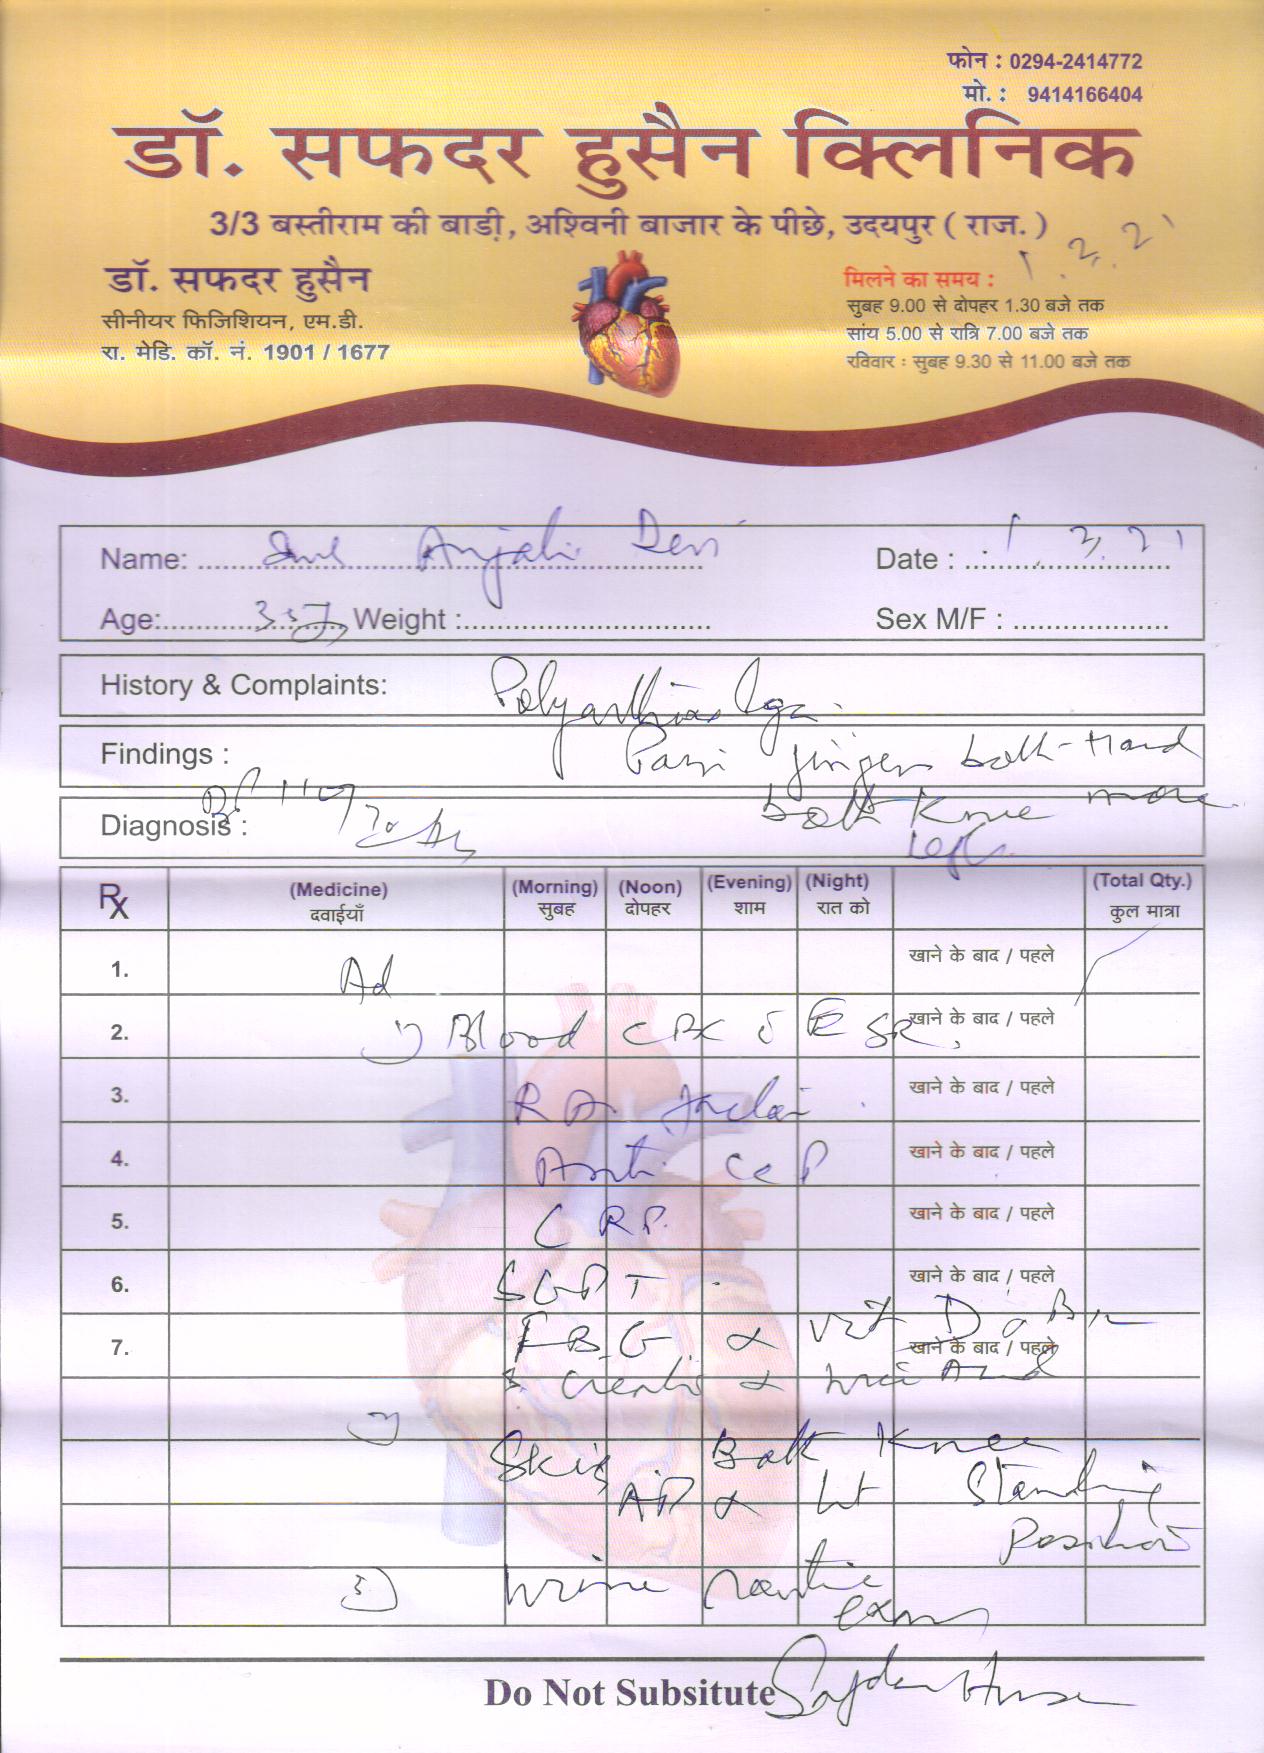 फोन : 0294-2414772
मो. : 9414166404
डॉ. सफदर हुसैन क्लिनिक
3/3 बस्तीराम की बाडी, अश्विनी बाजार के पीछे, उदयपुर ( राज. )
1.3.21
डॉ. सफदर हुसैन
सीनीयर फिजिशियन, एम.डी.
रा. मेडि. कॉ. नं. 1901 / 1677
मिलने का समय :
सुबह 9.00 से दोपहर 1.30 बजे तक
सांय 5.00 से रात्रि 7.00 बजे तक
रविवार : सुबह 9.30 से 11.00 बजे तक
Name: Anjali Devi Date : 1.3.21
Age: 35y Weight : Sex M/F :
History & Complaints: Polyarthralgia.
Findings : Pain finger both Hand
Diagnosis : both Knee more
Rx (Medicine) (Morning) (Noon) (Evening) (Night) (Total Qty.)
दवाईयाँ सुबह दोपहर शाम रात को कुल मात्रा
1. Ad खाने के बाद / पहले
2. 1) Blood CBC ESR, खाने के बाद / पहले
3. RA factor खाने के बाद / पहले
4. Anti CCP खाने के बाद / पहले
5. CRP. खाने के बाद / पहले
6. SGPT खाने के बाद / पहले
7. FBG & vit D & B12 खाने के बाद / पहले
S. Creatin & Uric Acid
2)
Both Knee
AP & Lat Standing
Position
3) Urine routine
exam
Do Not Subsitute Safdar Husain